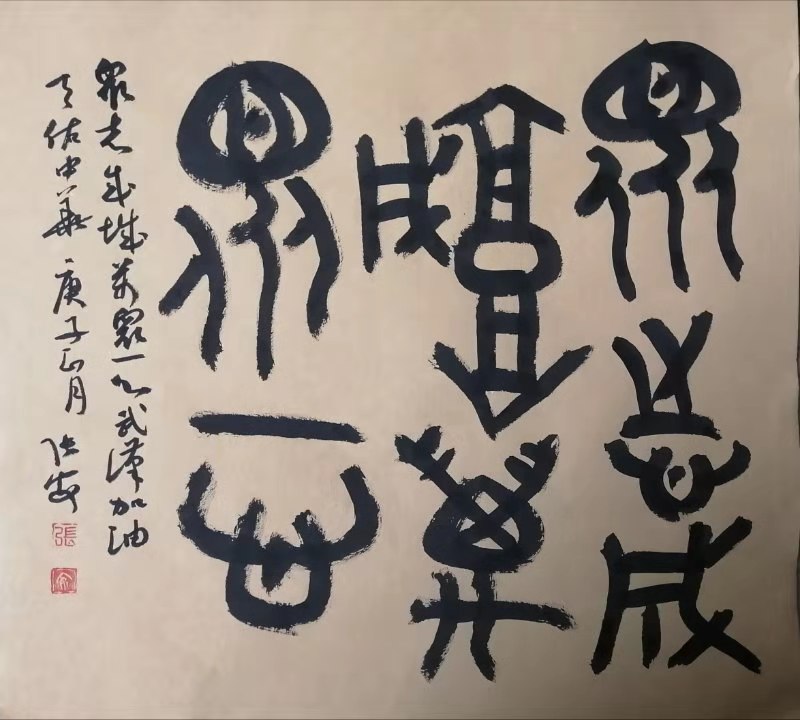 眾志成
城萬
眾一心
眾志成城萬眾一心武漢加油
天佑中華 庚子正月 張安
張
安